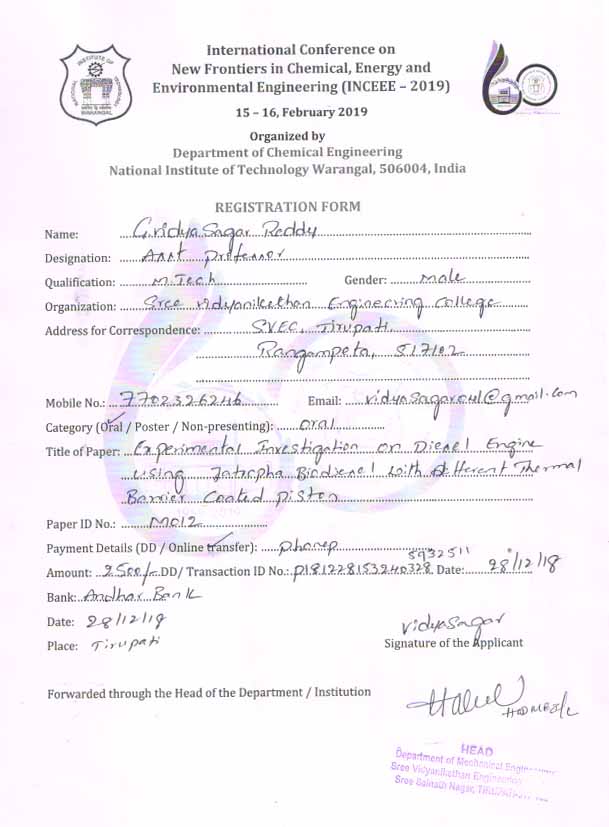 International Conference on
New Frontiers in Chemical, Energy and
Environmental Engineering (INCEEE – 2019)
15 – 16, February 2019
Organized by
Department of Chemical Engineering
National Institute of Technology Warangal, 506004, India
REGISTRATION FORM
Name: G.VidyaSagar Reddy
Designation: Asst professor
Qualification: M.Tech Gender: Male
Organization: Sree Vidyanikethan Engineering College
Address for Correspondence: SVEC, Tirupati
Rangampeta, 517102
Mobile No.: 7702326246 Email: @gmail.com
Category (Oral / Poster / Non-presenting): oral
Title of Paper: Experimental Investigation on Diesel Engine
using Jatropha Biodiesel with different Thermal
Barrier Coated piston
Paper ID No.: M012
Payment Details (DD / Online transfer):
5932511
Amount: 2500/- DD/ Transaction ID No.: P181228153240328 Date: 28/12/18
Bank: Andhra Bank
Date: 28/12/18
Place: Tirupati
VidyaSagar
Signature of the Applicant
Forwarded through the Head of the Department / Institution
HEAD
Department of Mechanical
Sree Vidyanikethan Engineering
Sree Sainath Nagar,